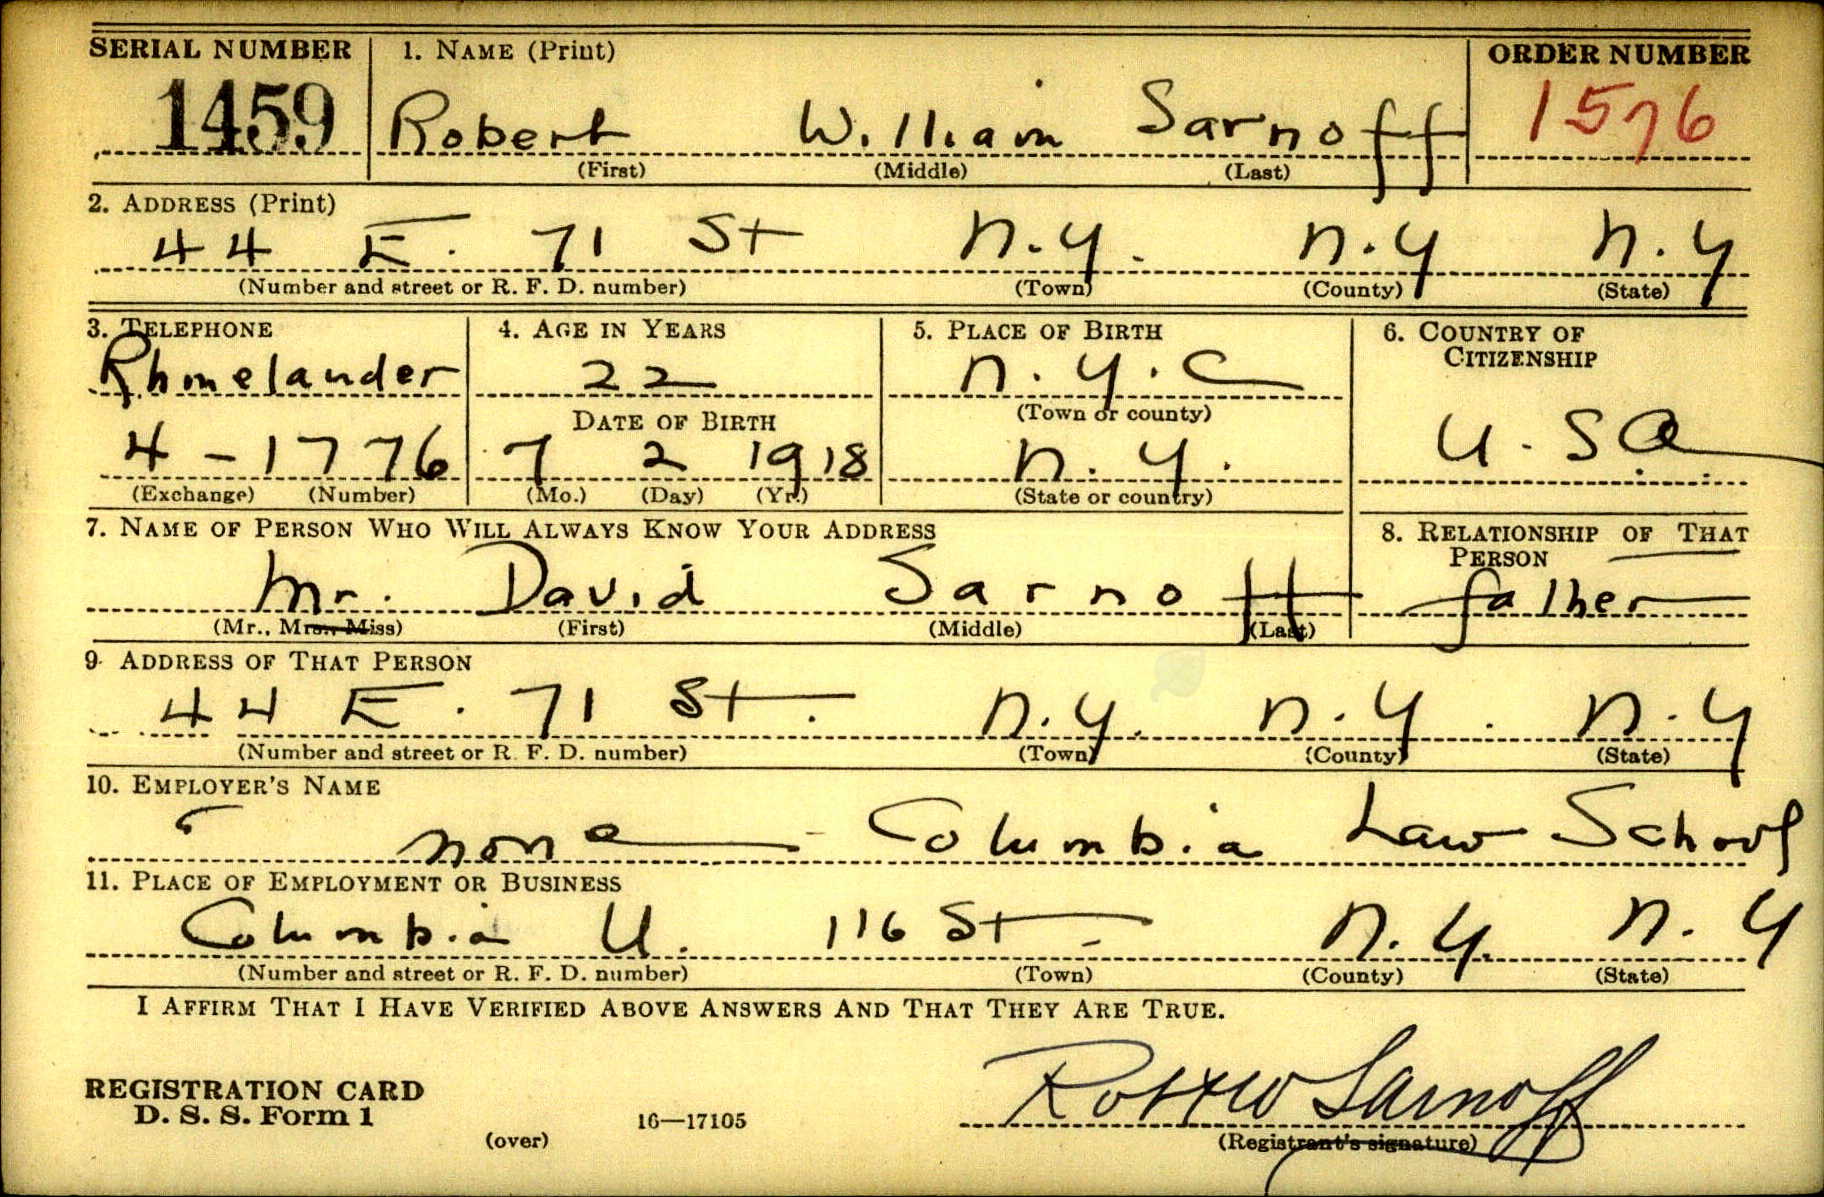 SERIAL NUMBER 1. NAME (Print) ORDER NUMBER
1459 Robert William Sarnoff 1576
(First) (Middle) (Last)
2. ADDRESS (Print)
44 E. 71 St N.Y. N.Y N.Y
(Number and street or R. F. D. number) (Town) (County) (State)
3. TELEPHONE 4. AGE IN YEARS 5. PLACE OF BIRTH 6. COUNTRY OF CITIZENSHIP
Rhinelander 22 N.Y.C
DATE OF BIRTH (Town or county) U.SA
4-1776 7 2 1918 N.Y.
(Exchange) (Number) (Mo.) (Day) (Yr.) (State or country)
7. NAME OF PERSON WHO WILL ALWAYS KNOW YOUR ADDRESS 8. RELATIONSHIP OF THAT PERSON
Mr. David Sarnoff father
(Mr., Mrs., Miss) (First) (Middle) (Last)
9. ADDRESS OF THAT PERSON
44 E. 71 St. N.Y. N.Y. N.Y
(Number and street or R. F. D. number) (Town) (County) (State)
10. EMPLOYER'S NAME
none - Columbia Law School
11. PLACE OF EMPLOYMENT OR BUSINESS
Columbia U. 116 St- N.Y. N.Y
(Number and street or R. F. D. number) (Town) (County) (State)
I AFFIRM THAT I HAVE VERIFIED ABOVE ANSWERS AND THAT THEY ARE TRUE.
REGISTRATION CARD
D. S. S. Form 1 16—17105 Robt W Sarnoff
(over) (Registrant's signature)